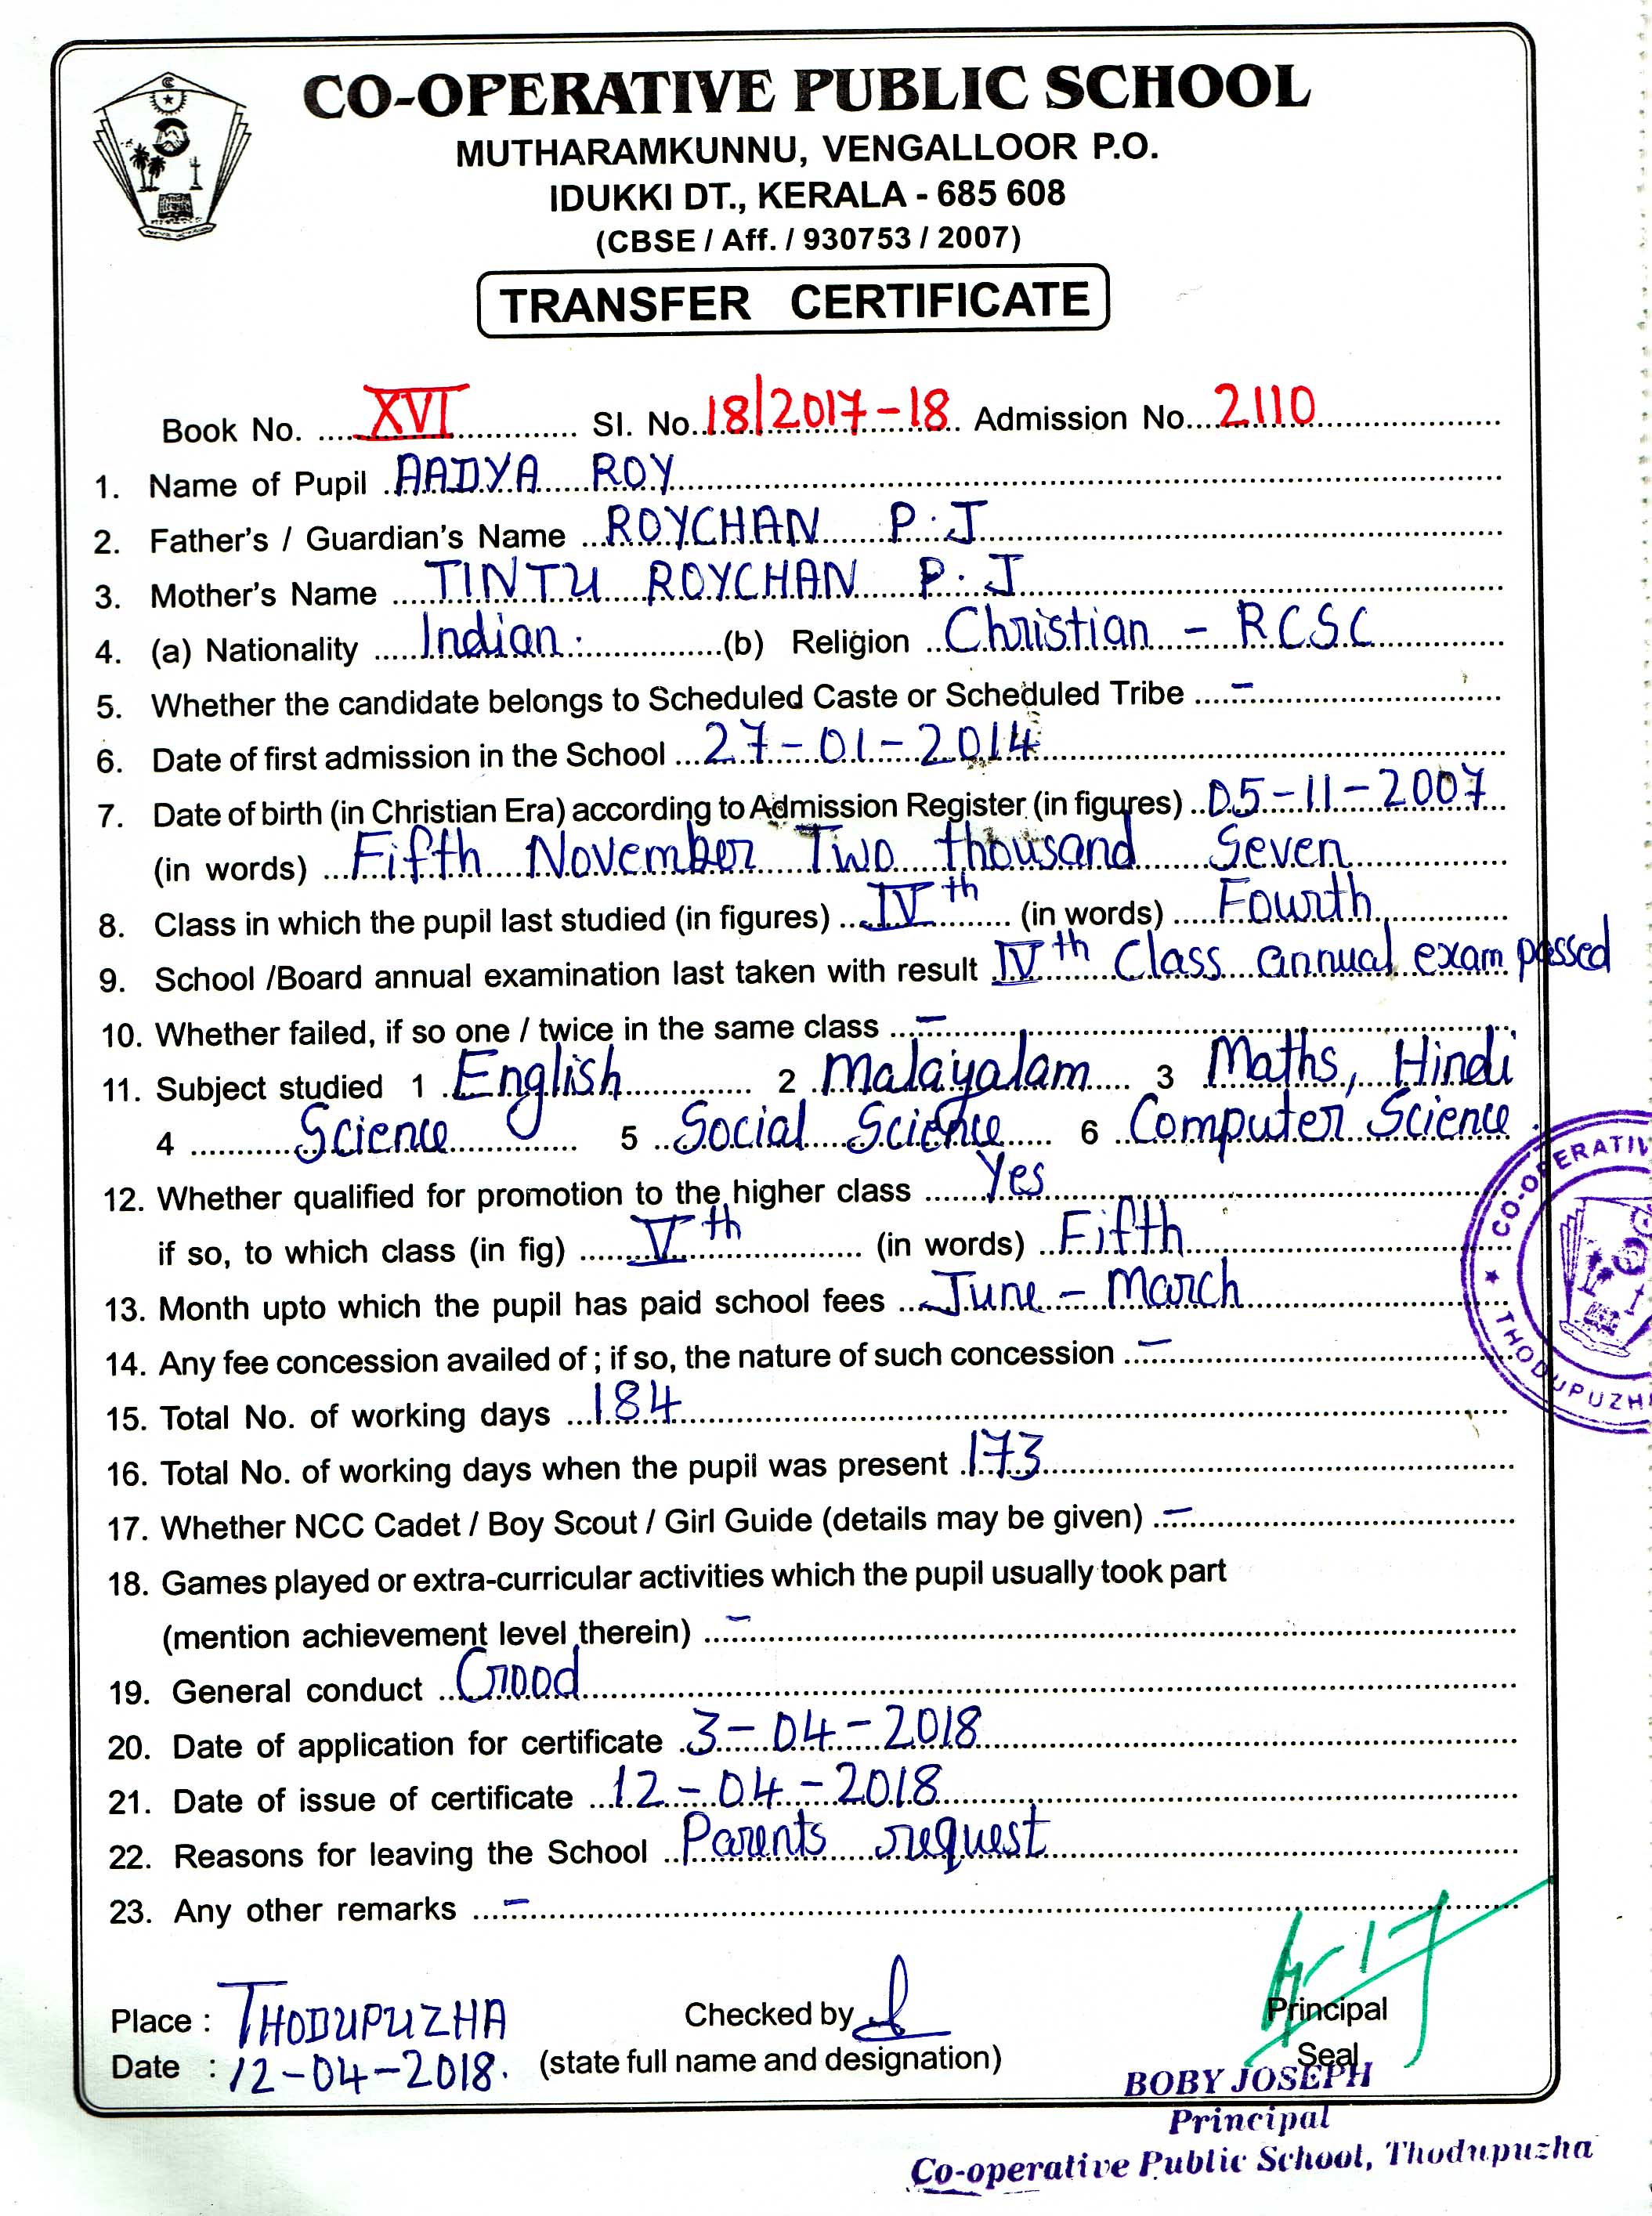 CO-OPERATIVE PUBLIC SCHOOL
MUTHARAMKUNNU, VENGALLOOR P.O.
IDUKKI DT., KERALA - 685 608
(CBSE / Aff. / 930753 / 2007)
TRANSFER CERTIFICATE
Book No. XVI Sl. No. 18/2017-18 Admission No. 2110
1. Name of Pupil AADYA ROY
2. Father's / Guardian's Name ROYCHAN P.J
3. Mother's Name TINTU ROYCHAN P.J
4. (a) Nationality Indian. (b) Religion Christian - RCSC
5. Whether the candidate belongs to Scheduled Caste or Scheduled Tribe -
6. Date of first admission in the School 27-01-2014
7. Date of birth (in Christian Era) according to Admission Register (in figures) 05-11-2007
(in words) Fifth November Two thousand Seven
8. Class in which the pupil last studied (in figures) IVth (in words) Fourth
9. School /Board annual examination last taken with result IVth Class annual exam passed
10. Whether failed, if so one / twice in the same class -
11. Subject studied 1 English 2 Malayalam 3 Maths, Hindi
4 Science 5 Social Science 6 Computer Science.
12. Whether qualified for promotion to the higher class Yes
if so, to which class (in fig) Vth (in words) Fifth
13. Month upto which the pupil has paid school fees June - March
14. Any fee concession availed of ; if so, the nature of such concession -
15. Total No. of working days 184
16. Total No. of working days when the pupil was present 173
17. Whether NCC Cadet / Boy Scout / Girl Guide (details may be given) -
18. Games played or extra-curricular activities which the pupil usually took part
(mention achievement level therein) -
19. General conduct Good
20. Date of application for certificate 3-04-2018
21. Date of issue of certificate 12-04-2018
22. Reasons for leaving the School Parents request
23. Any other remarks -
Place : THODUPUZHA Checked by Principal
Date : 12-04-2018. (state full name and designation) Seal
BOBY JOSEPH
Principal
Co-operative Public School, Thodupuzha